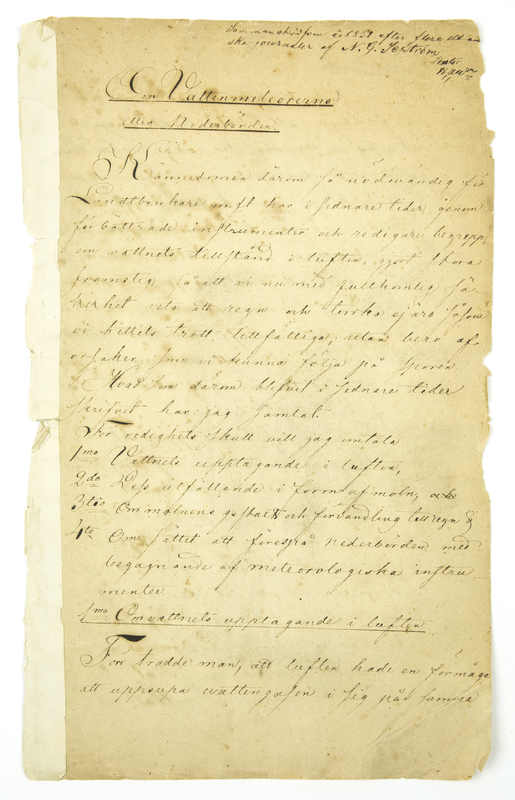 Sammanskrifven år 1851 efter flere
ska journaler af N. G.
Om Vattenmeteorerna
eller Nederbörden
Kännedomen därom så nödvändig för
Landtbrukare m.fl. har i sednare tider, genom
förbättrade instrumenter och redigare begrepp,
om vattnets tillstånd i luften, gjort stora
framsteg, så att vi nu med fullkomlig sä-
kerhet veta att regn och torrka ej äro såsom
vi hittils trott tillfälliga, utan bero af
orsaker, som vi kunna följa på spåren.
Hvad som därom blifvit i sednare tider
skrifvet har jag samlat.
För redighets skull vill jag omtala
1mo Vattnets upptagande i luften,
2do Dess utfällande i form af moln, och
3tio Om molnens gestalt och förvandling till regn &
4to Om sättet att förespå nederbörden med
begagnande af meteorologiska instru-
menter
1mo Om vattnets upptagande i luften
Förr trodde man, att luften hade en förmåga
att uppsupa vattengasen i sig på samma